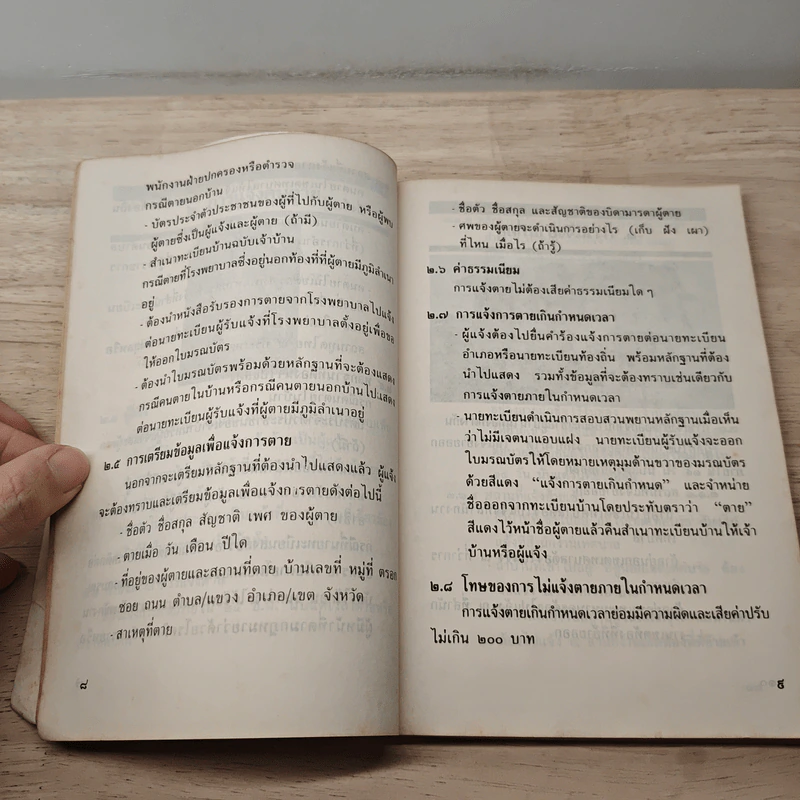 พนักงานฝ่ายปกครองหรือตำรวจ
กรณีตายนอกบ้าน
- บัตรประจำตัวประชาชนของผู้ที่ไปกับผู้ตาย หรือผู้พบ
ผู้ตายซึ่งเป็นผู้แจ้งและผู้ตาย (ถ้ามี)
- สำเนาทะเบียนบ้านฉบับเจ้าบ้าน
กรณีตายที่โรงพยาบาลซึ่งอยู่นอกท้องที่ที่ผู้ตายมีภูมิลำเนา
อยู่
- ต้องนำหนังสือรับรองการตายจากโรงพยาบาลไปแจ้ง
ต่อนายทะเบียนผู้รับแจ้งที่โรงพยาบาลตั้งอยู่เพื่อขอ
ให้ออกใบมรณบัตร
- ต้องนำใบมรณบัตรพร้อมด้วยหลักฐานที่จะต้องแสดง
กรณีคนตายในบ้านหรือกรณีคนตายนอกบ้านไปแสดง
ต่อนายทะเบียนผู้รับแจ้งที่ผู้ตายมีภูมิลำเนาอยู่
๒.๕ การเตรียมข้อมูลเพื่อแจ้งการตาย
นอกจากจะเตรียมหลักฐานที่ต้องนำไปแสดงแล้ว ผู้แจ้ง
จะต้องทราบและเตรียมข้อมูลเพื่อแจ้งการตายดังต่อไปนี้
- ชื่อตัว ชื่อสกุล สัญชาติ เพศ ของผู้ตาย
- ตายเมื่อ วัน เดือน ปีใด
- ที่อยู่ของผู้ตายและสถานที่ตาย บ้านเลขที่ หมู่ที่ ตรอก
ซอย ถนน ตำบล/แขวง อำเภอ/เขต จังหวัด
- สาเหตุที่ตาย
๘
- ชื่อตัว ชื่อสกุล และสัญชาติของบิดามารดาผู้ตาย
- ศพของผู้ตายจะดำเนินการอย่างไร (เก็บ ฝัง เผา)
ที่ไหน เมื่อไร (ถ้ารู้)
๒.๖ ค่าธรรมเนียม
การแจ้งตายไม่ต้องเสียค่าธรรมเนียมใด ๆ
๒.๗ การแจ้งการตายเกินกำหนดเวลา
- ผู้แจ้งต้องไปยื่นคำร้องแจ้งการตายต่อนายทะเบียน
อำเภอหรือนายทะเบียนท้องถิ่น พร้อมหลักฐานที่ต้อง
นำไปแสดง รวมทั้งข้อมูลที่จะต้องทราบเช่นเดียวกับ
การแจ้งตายภายในกำหนดเวลา
- นายทะเบียนดำเนินการสอบสวนพยานหลักฐานเมื่อเห็น
ว่าไม่มีเจตนาแอบแฝง นายทะเบียนผู้รับแจ้งจะออก
ใบมรณบัตรให้โดยหมายเหตุมุมด้านขวาของมรณบัตร
ด้วยสีแดง “แจ้งการตายเกินกำหนด” และจำหน่าย
ชื่อออกจากทะเบียนบ้านโดยประทับตราว่า “ตาย”
สีแดงไว้หน้าชื่อผู้ตายแล้วคืนสำเนาทะเบียนบ้านให้เจ้า
บ้านหรือผู้แจ้ง
๒.๘ โทษของการไม่แจ้งตายภายในกำหนดเวลา
การแจ้งตายเกินกำหนดเวลาย่อมมีความผิดและเสียค่าปรับ
ไม่เกิน ๒๐๐ บาท
๙